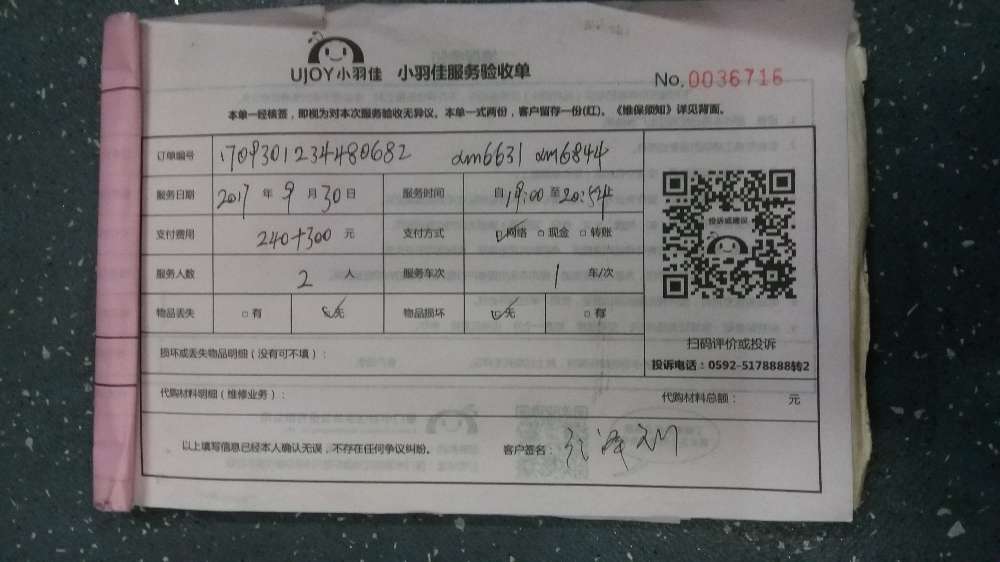 UJOY小羽佳 小羽佳服务验收单
No. 0036716
本单一经核签，即视为对本次服务验收无异议。本单一式两份，客户留存一份(红)。《维保须知》详见背面。
订单编号 1709301234480682 dm6631 dm6844
服务日期 2017 年 9 月 30 日 服务时间 自 19:00 至 20:54
支付费用 240+300 元 支付方式 网络 现金 转账
服务人数 2 人 服务车次 1 车/次
物品丢失 有 无 物品损坏 无 有
投诉或建议
扫码评价或投诉
投诉电话：0592-5178888转2
损坏或丢失物品明细（没有可不填）：
代购材料明细（维修业务）： 代购材料总额： 元
以上填写信息已经本人确认无误，不存在任何争议纠纷。 客户签名：